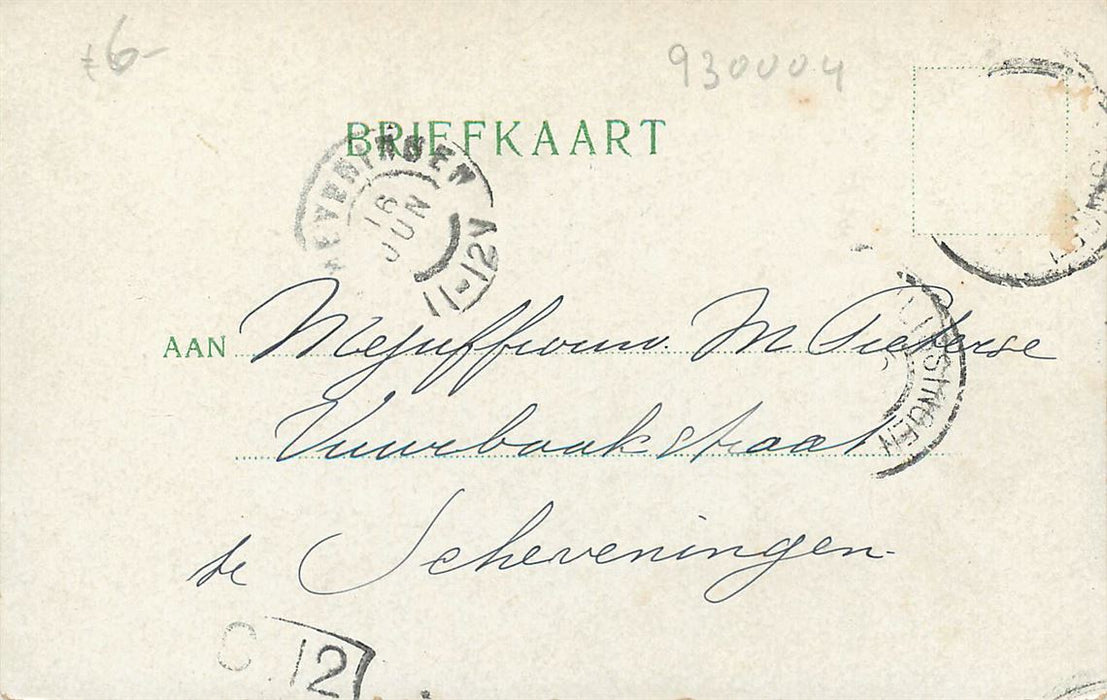 £6-
930004
BRIEFKAART
EVENINGEN
16
JUN
11-12V
AAN Mejuffrouw M Pieterse
Vuurbaakstraat
te Scheveningen
SINGEN
C 12